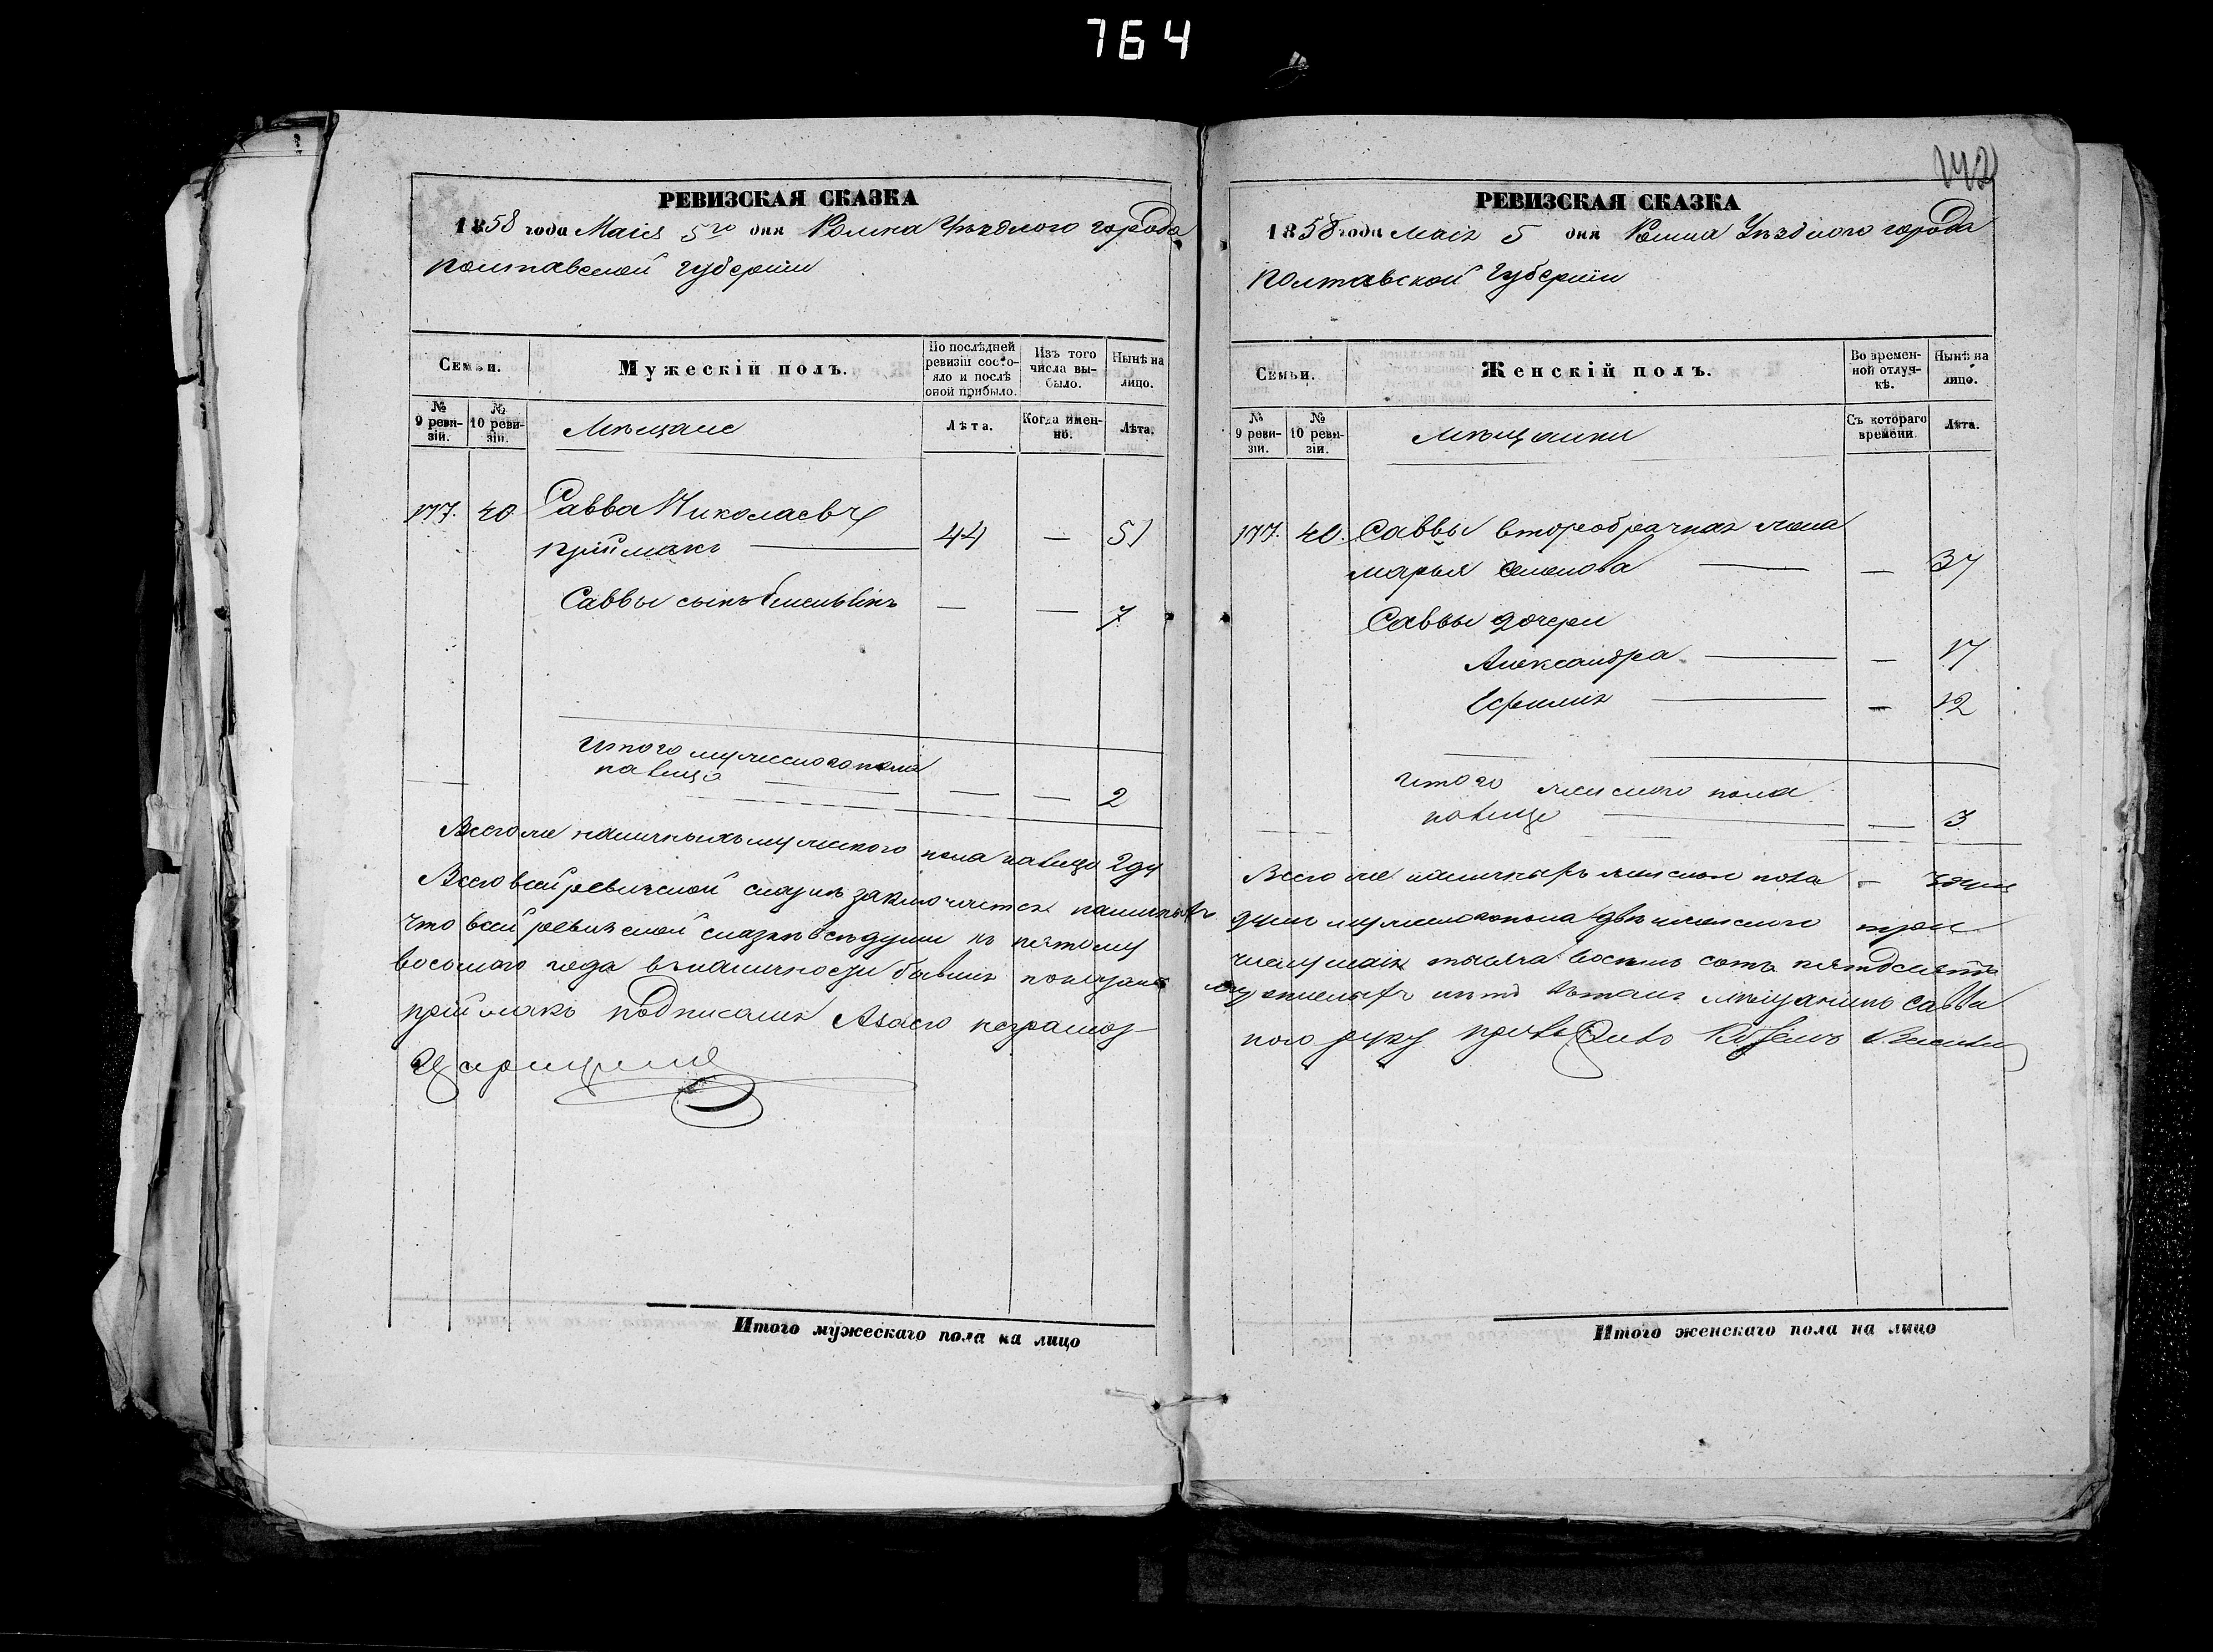 764
142
РЕВИЗСКАЯ СКАЗКА
1858 года Маія 5го дня Ромна Уѣзднаго города
Полтавской Губерніи
Семьи.
Мужескій полъ.
По послѣдней ревизіи состояло и послѣ оной прибыло.
Изъ того числа выбыло.
Нынѣ на лицо.
№ 9 ревизіи.
№ 10 ревизіи.
Мѣщане
Лѣта.
Когда именно.
Лѣта.
177. 40. Савва Николаевъ
Пріймакъ — 44 — 51
Саввы сынъ — — 7
Итого мужескаго пола
на лицо — — — 2
Всего же наличныхъ мужескаго пола на лицо 2 ду
Всего в сей ревизской сказкѣ заключается наличныхъ
что в сей ревизской сказкѣ всѣ души къ пятому
восьмаго года въ наличности бывшія показаны
Пріймакъ подписался А за его неграмот-
Итого мужескаго пола на лицо
РЕВИЗСКАЯ СКАЗКА
1858 года Маія 5 дня Ромна Уѣзднаго города
Полтавской Губерніи
Семьи.
Женскій полъ.
Во временной отлучкѣ.
Нынѣ на лицо.
№ 9 ревизіи.
№ 10 ревизіи.
Мѣщанки
Съ котораго времени.
Лѣта.
177. 40. Саввы второбрачная жена
Марья Семенова — — 37
Саввы дочери
Александра — — 17
Ефимія — — 12
Итого женскаго пола
на лице — — 3
Всего же наличныхъ женскаго пола — 3 души
душъ мужескаго пола двѣ женскаго три
числу маія тысяча восемь сотъ пятдесятъ
мѣщанинъ Савва
ного руку
Итого женскаго пола на лицо